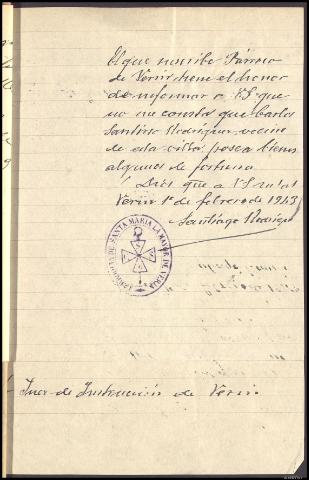 El que suscribe Párroco
de Verin tiene el honor
de informar a VS que
no me consta que Carlos
Santiso Rodriguez vecino
de esta villa, posea bienes
algunos de fortuna
Dios gue a VS m. as
Verin 1º de febrero de 1943
Santiago Rodrigo
PARROQUIA DE SANTA MARIA LA MAYOR DE VERIN
Juez de Instrucción de Verin